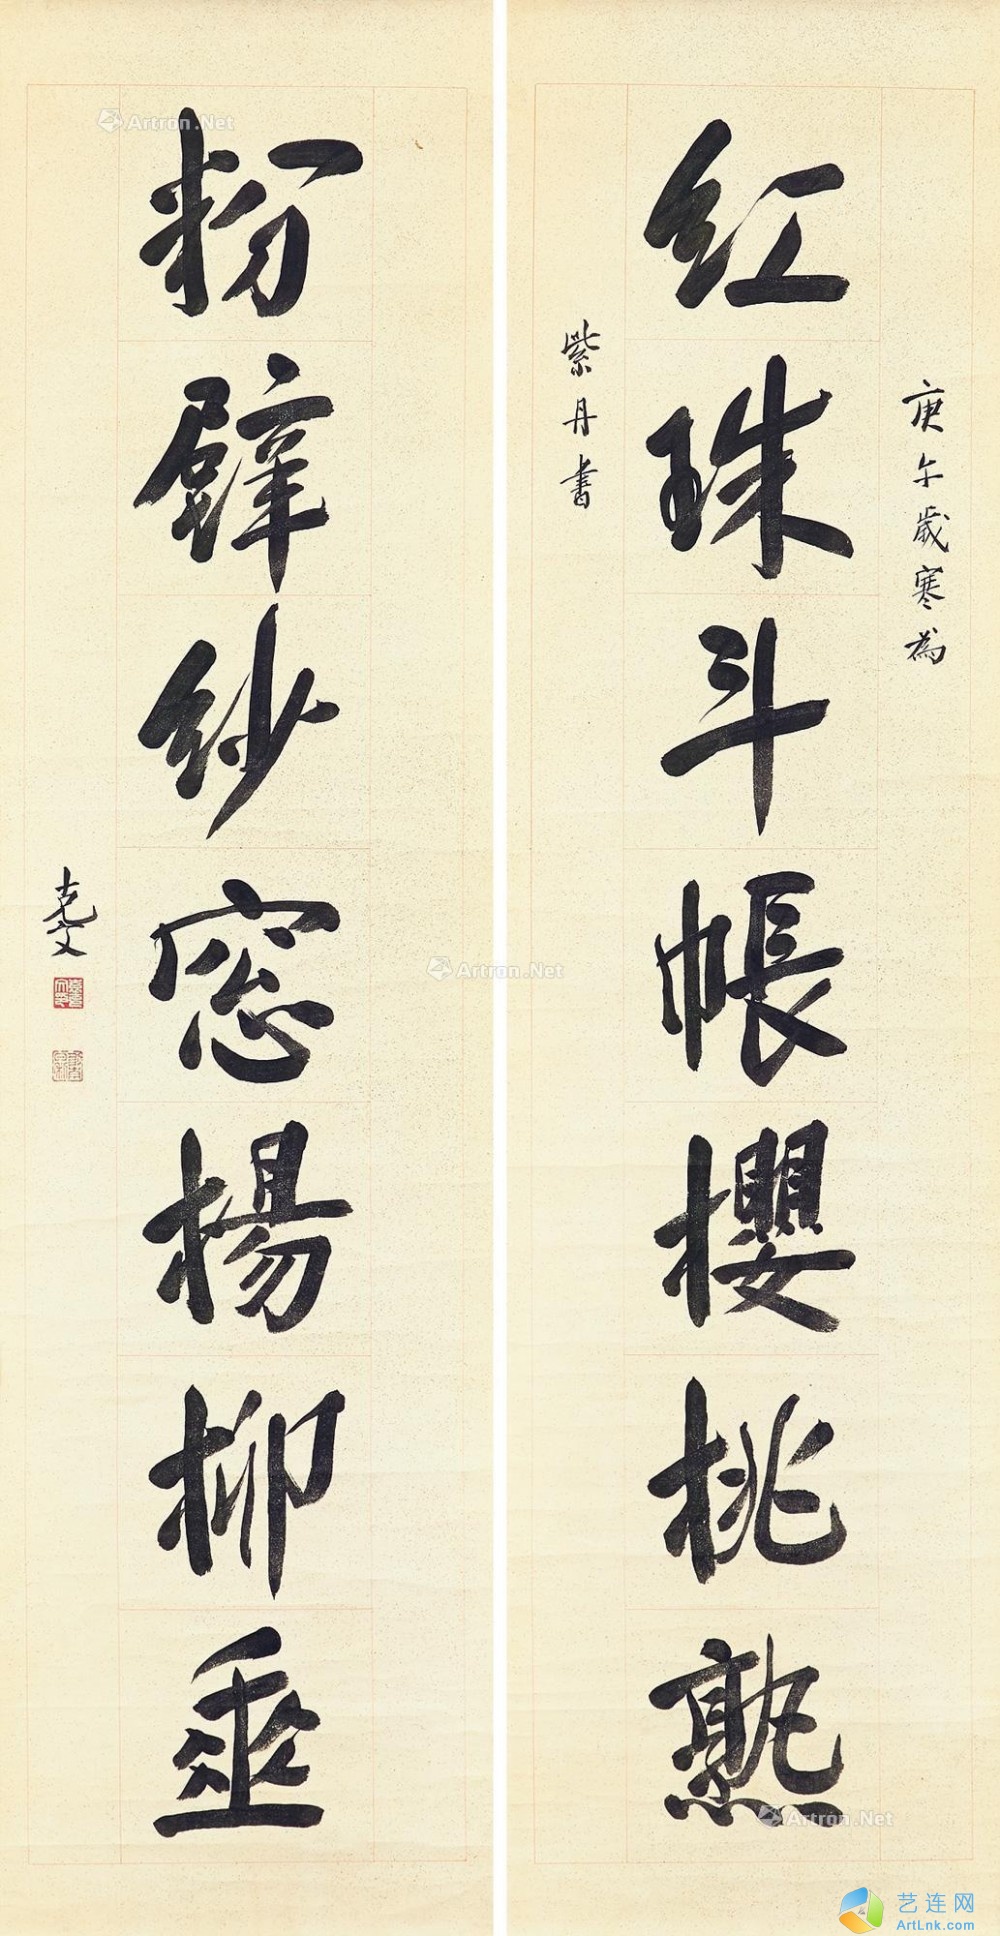 庚午歲寒為
紅珠斗帳櫻桃熟
紫丹書
粉壁紗窓楊柳垂
克文
Artron.Net
Artron.Net
Artron.Net
艺连网
ArtLnk.com